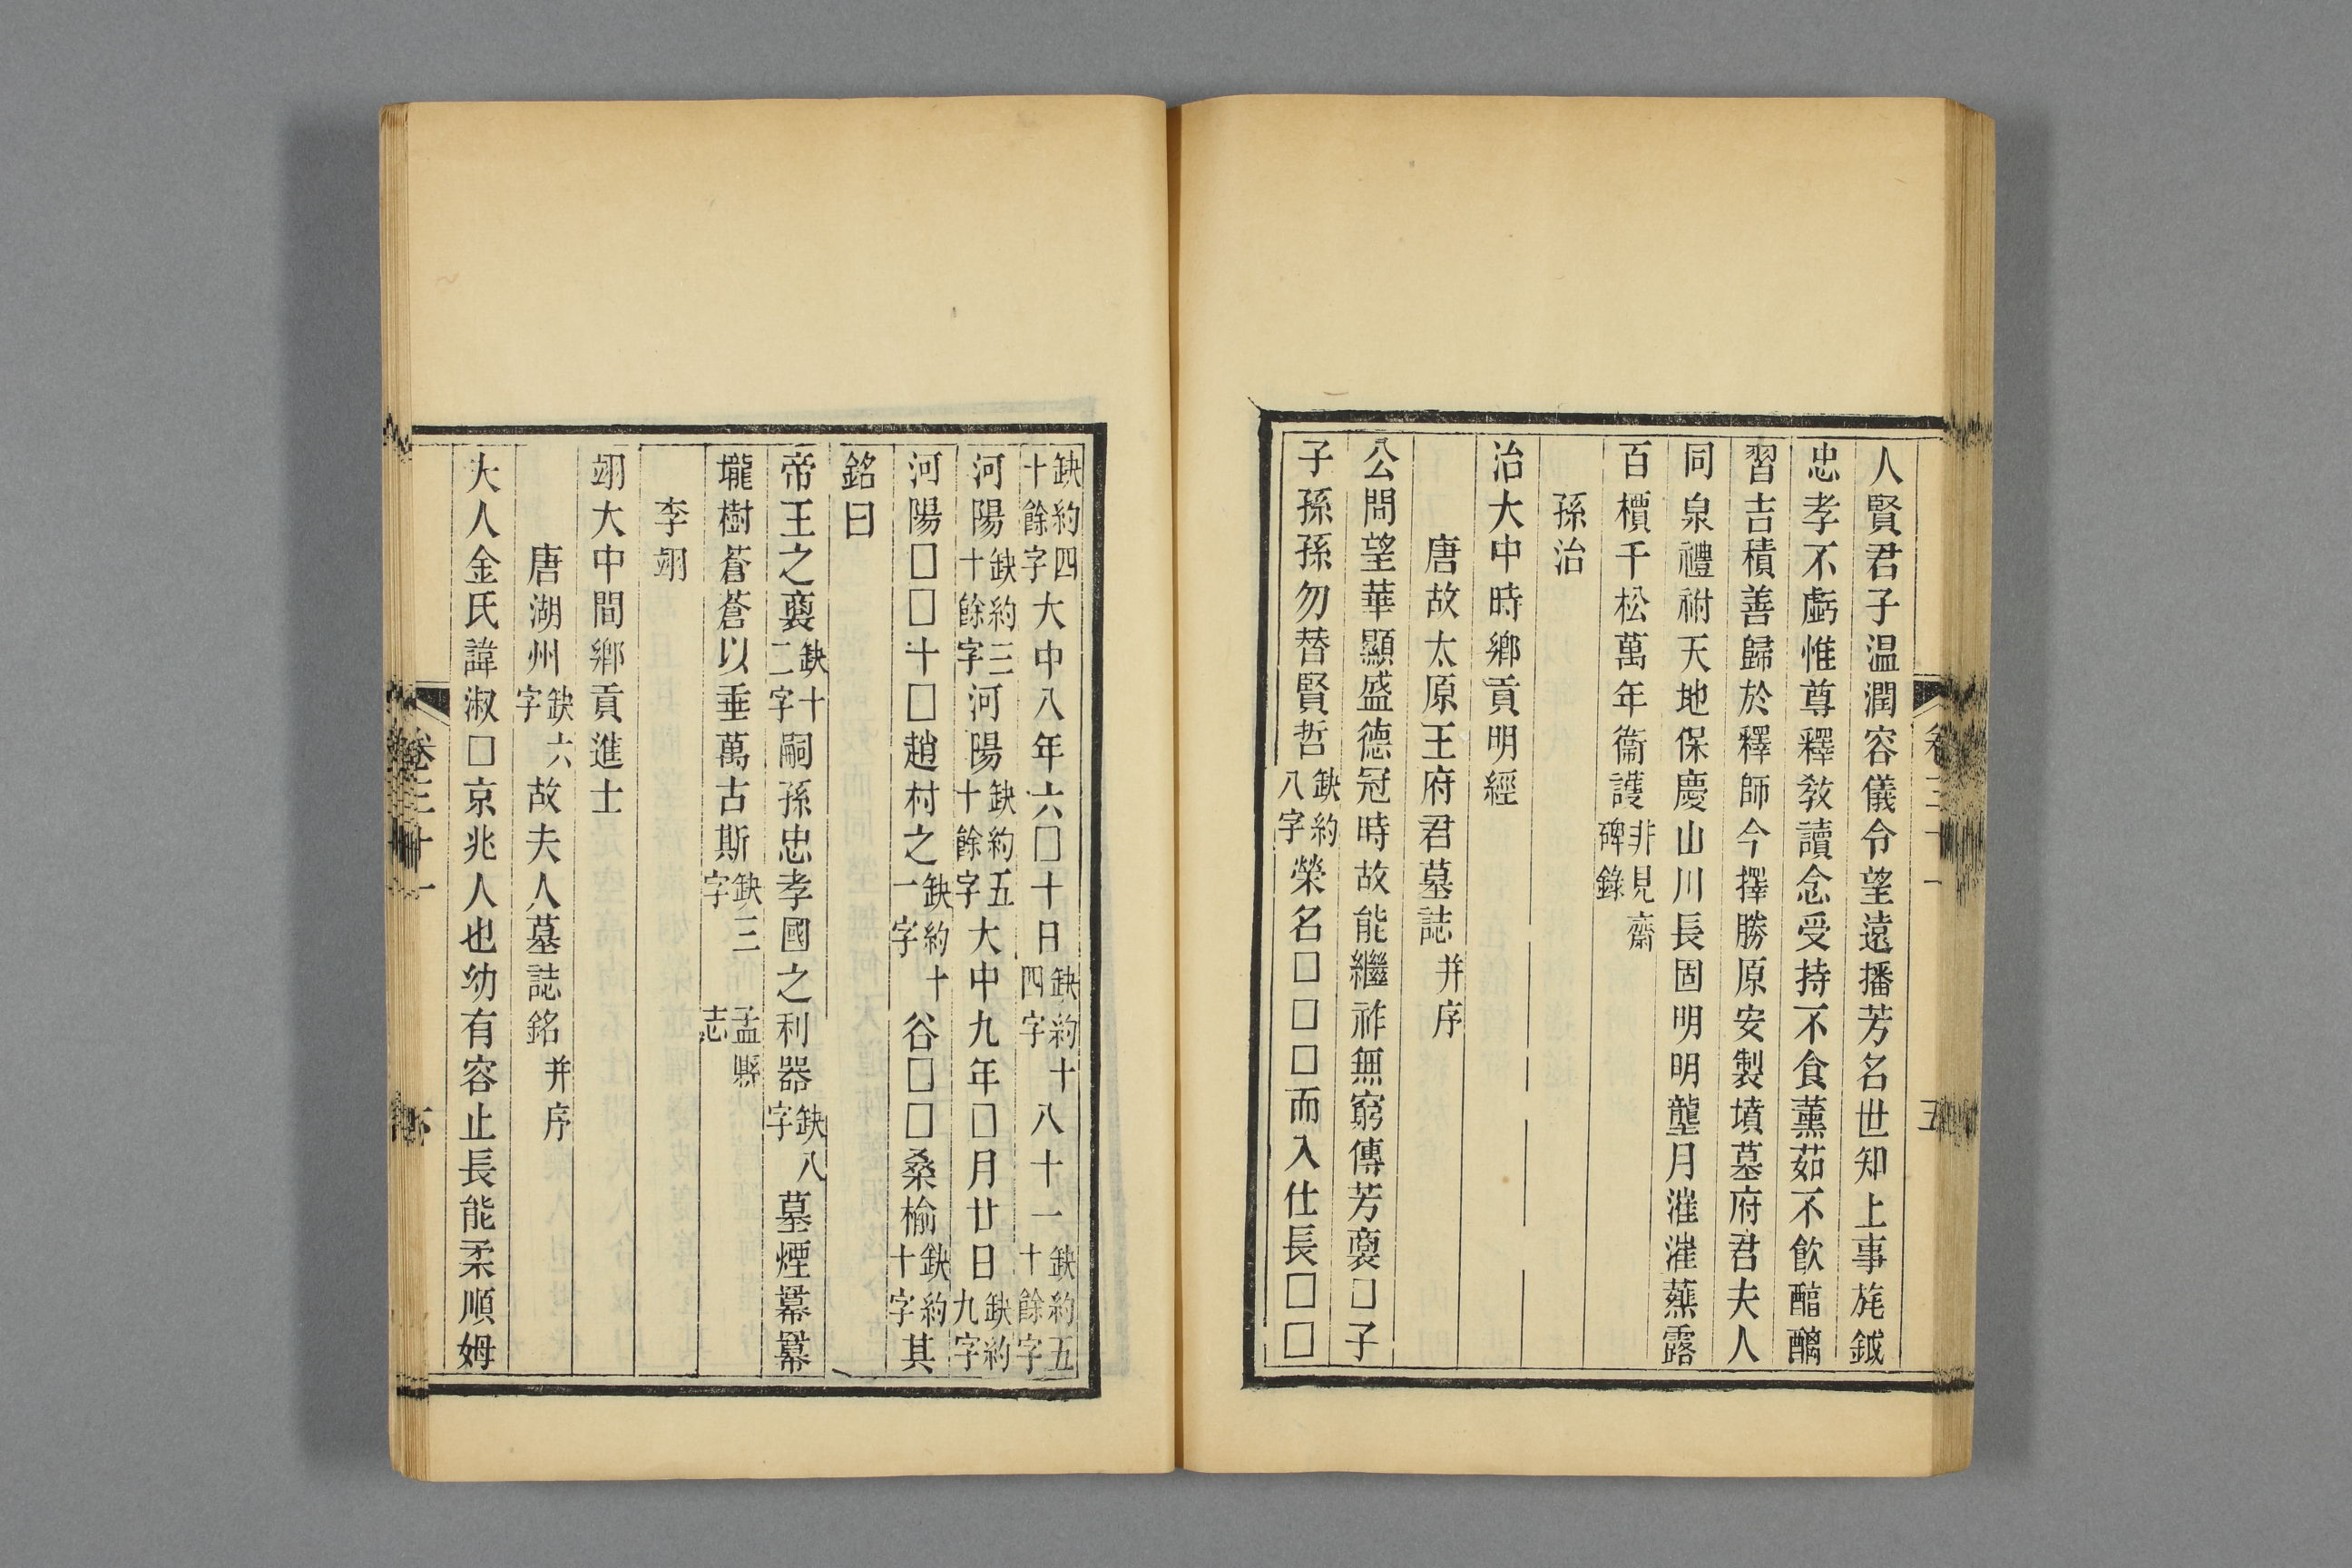 人賢君子温潤容儀令望遠播芳名世知上事旄鉞
忠孝不虧惟尊釋敎讀念受持不食薫茹不飮醖醨
習吉積善歸於釋師今擇勝原安製墳墓府君夫人
同泉禮祔天地保慶山川長固明明壟月漼漼薤露
百櫝千松萬年衞護非見齋碑錄
孫治
治大中時鄉貢明經
唐故太原王府君墓誌并序
公閥望華顯盛德冠時故能繼祚無窮傳芳裔□子
子孫孫勿替賢哲缺約八字榮名□□□而入仕長□□
缺約四十餘字大中八年六□十日缺約四字十八十一缺約五十餘字
河陽缺約三十餘字河陽缺約五十餘字大中九年□月廿日缺約九字
河陽□□十□趙村之缺約十一字谷□□桑榆缺約十字其
銘曰
帝王之裔缺十二字嗣孫忠孝國之利器缺八字墓煙羃羃
壠樹蒼蒼以垂萬古斯缺三字孟縣志
李翊
翊大中間鄉貢進士
唐湖州缺六字故夫人墓誌銘并序
大人金氏諱淑□京兆人也幼有容止長能柔順姆
卷三十一
五